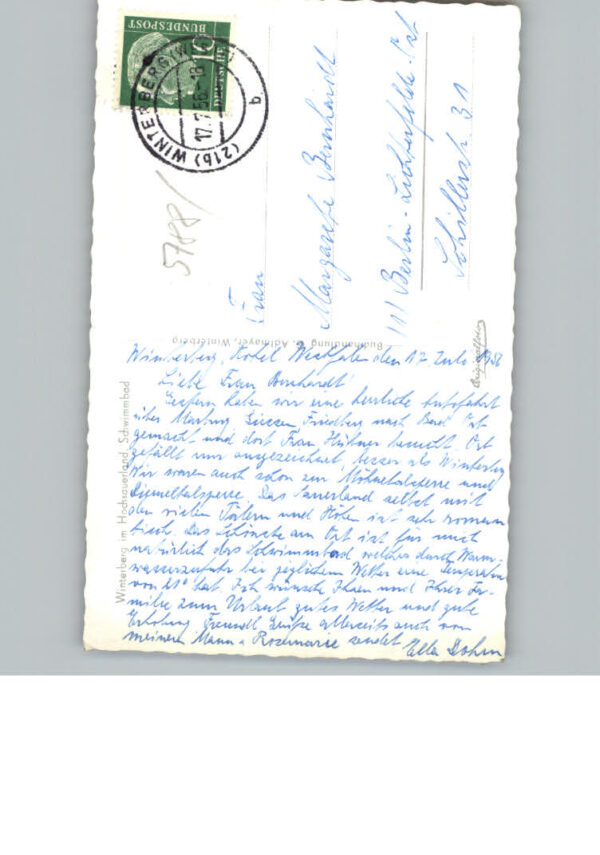 DEUTSCHE
BUNDESPOST
10
(21b) WINTERBERG (WESTF)
17.7.56-18
b
5788/
Frau
Margarete Bernhardt
111 Berlin-Lichterfelde-Ost
Schillerstr 31
Buchhandlung Adlmayer, Winterberg
Originalfoto
Winterberg im Hochsauerland, Schwimmbad
Winterberg, Hotel Westfalen den 17 Juli 1956
Liebe Frau Bernhardt!
Gestern haben wir eine herrliche Autofahrt
über Marburg, Giessen Friedberg nach Bad
gemacht und dort Frau Hübner besucht. Ort
gefällt mir ausgezeichnet, besser als Winterberg
Wir waren auch schon zur Möhnetalsperre und
Diemeltalsperre. Das Sauerland selbst mit
den vielen Tälern und Höhen ist sehr roman
tisch. Das Schönste am Ort ist für mich
natürlich das Schwimmbad welches durch Warm-
wasserzufuhr bei jeglichem Wetter eine Temperatur
von 21° hat. Ich wünsche Ihnen und Ihrer Fa-
milie zum Urlaub gutes Wetter und gute
Erholung Freundl Grüße allerseits auch von
meinem Mann u Rosemarie sendet Ella Dohm